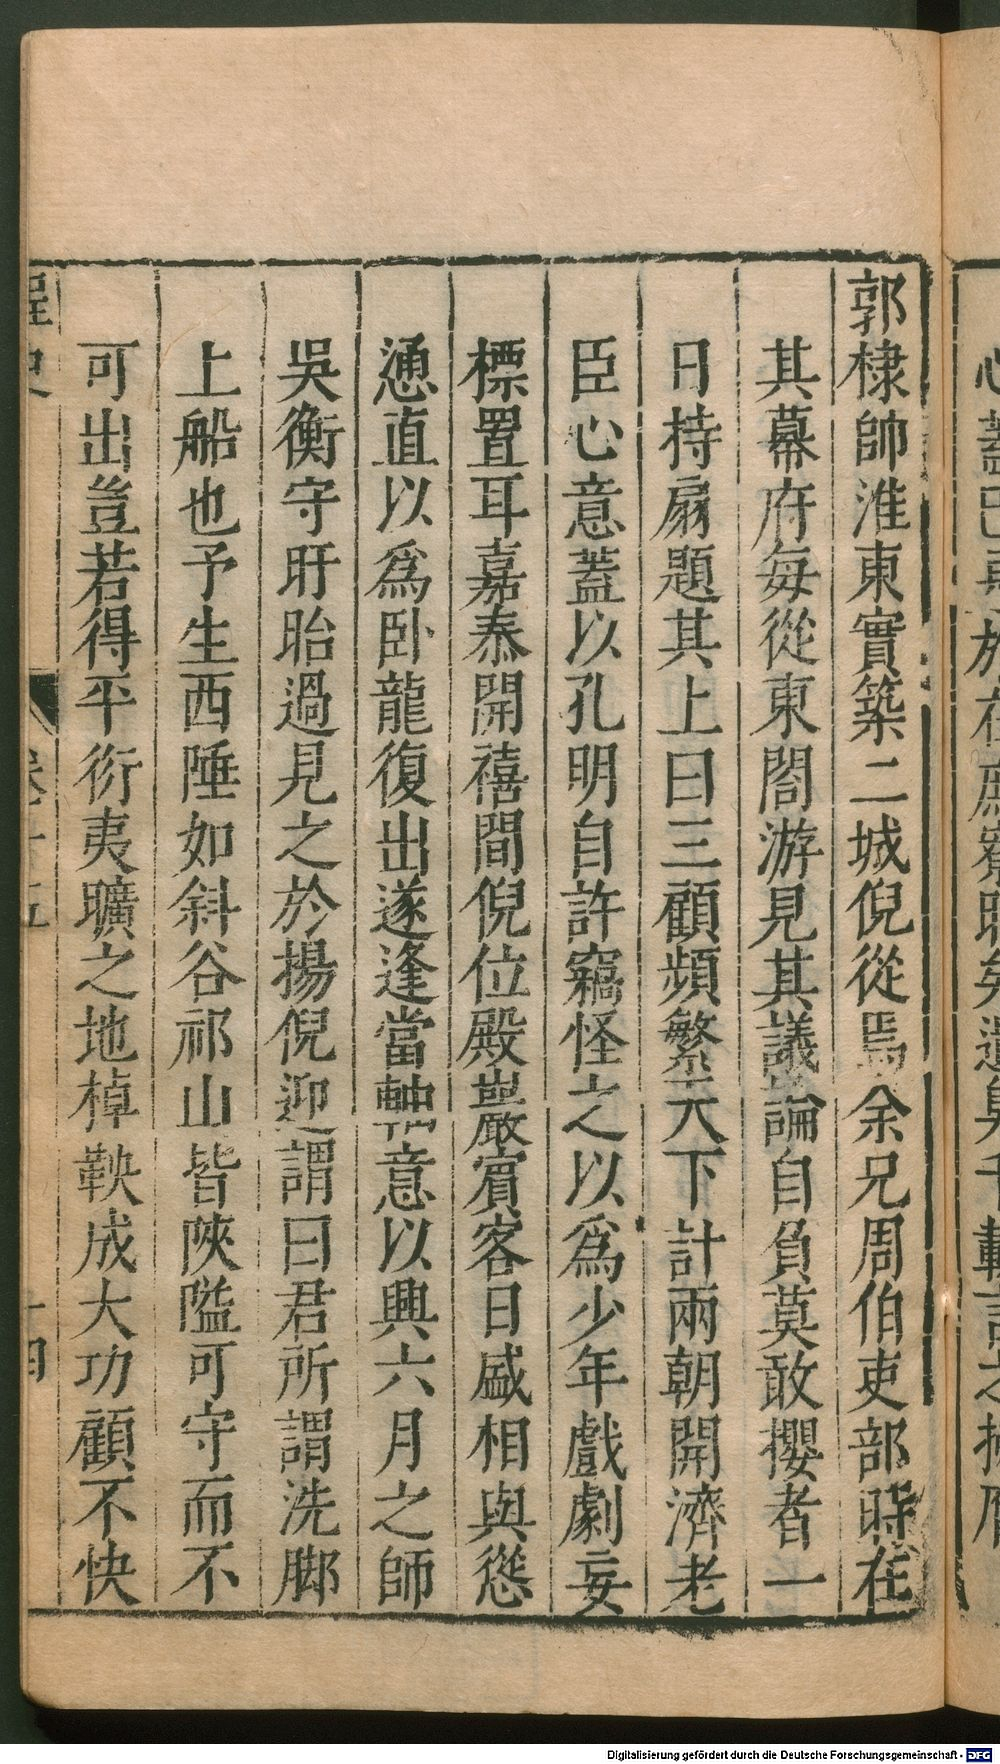 郭棣帥淮東實築二城倪從焉余兄周伯吏部時在
其幕府每從東閤游見其議論自負莫敢攖者一
日持扇題其上曰三顧頻繁天下計兩朝開濟老
臣心意蓋以孔明自許竊怪之以爲少年戲劇妄
標置耳嘉泰開禧間倪位殿巖賓客日盛相與慫
慂直以爲卧龍復出遂逢當軸意以興六月之師
吳衡守盱眙過見之於揚倪迎謂曰君所謂洗脚
上船也予生西陲如斜谷祁山皆陜隘可守而不
可出豈若得平衍夷曠之地掉鞅成大功顧不快
桯史
卷十五
十四
Digitalisierung gefördert durch die Deutsche Forschungsgemeinschaft - DFG